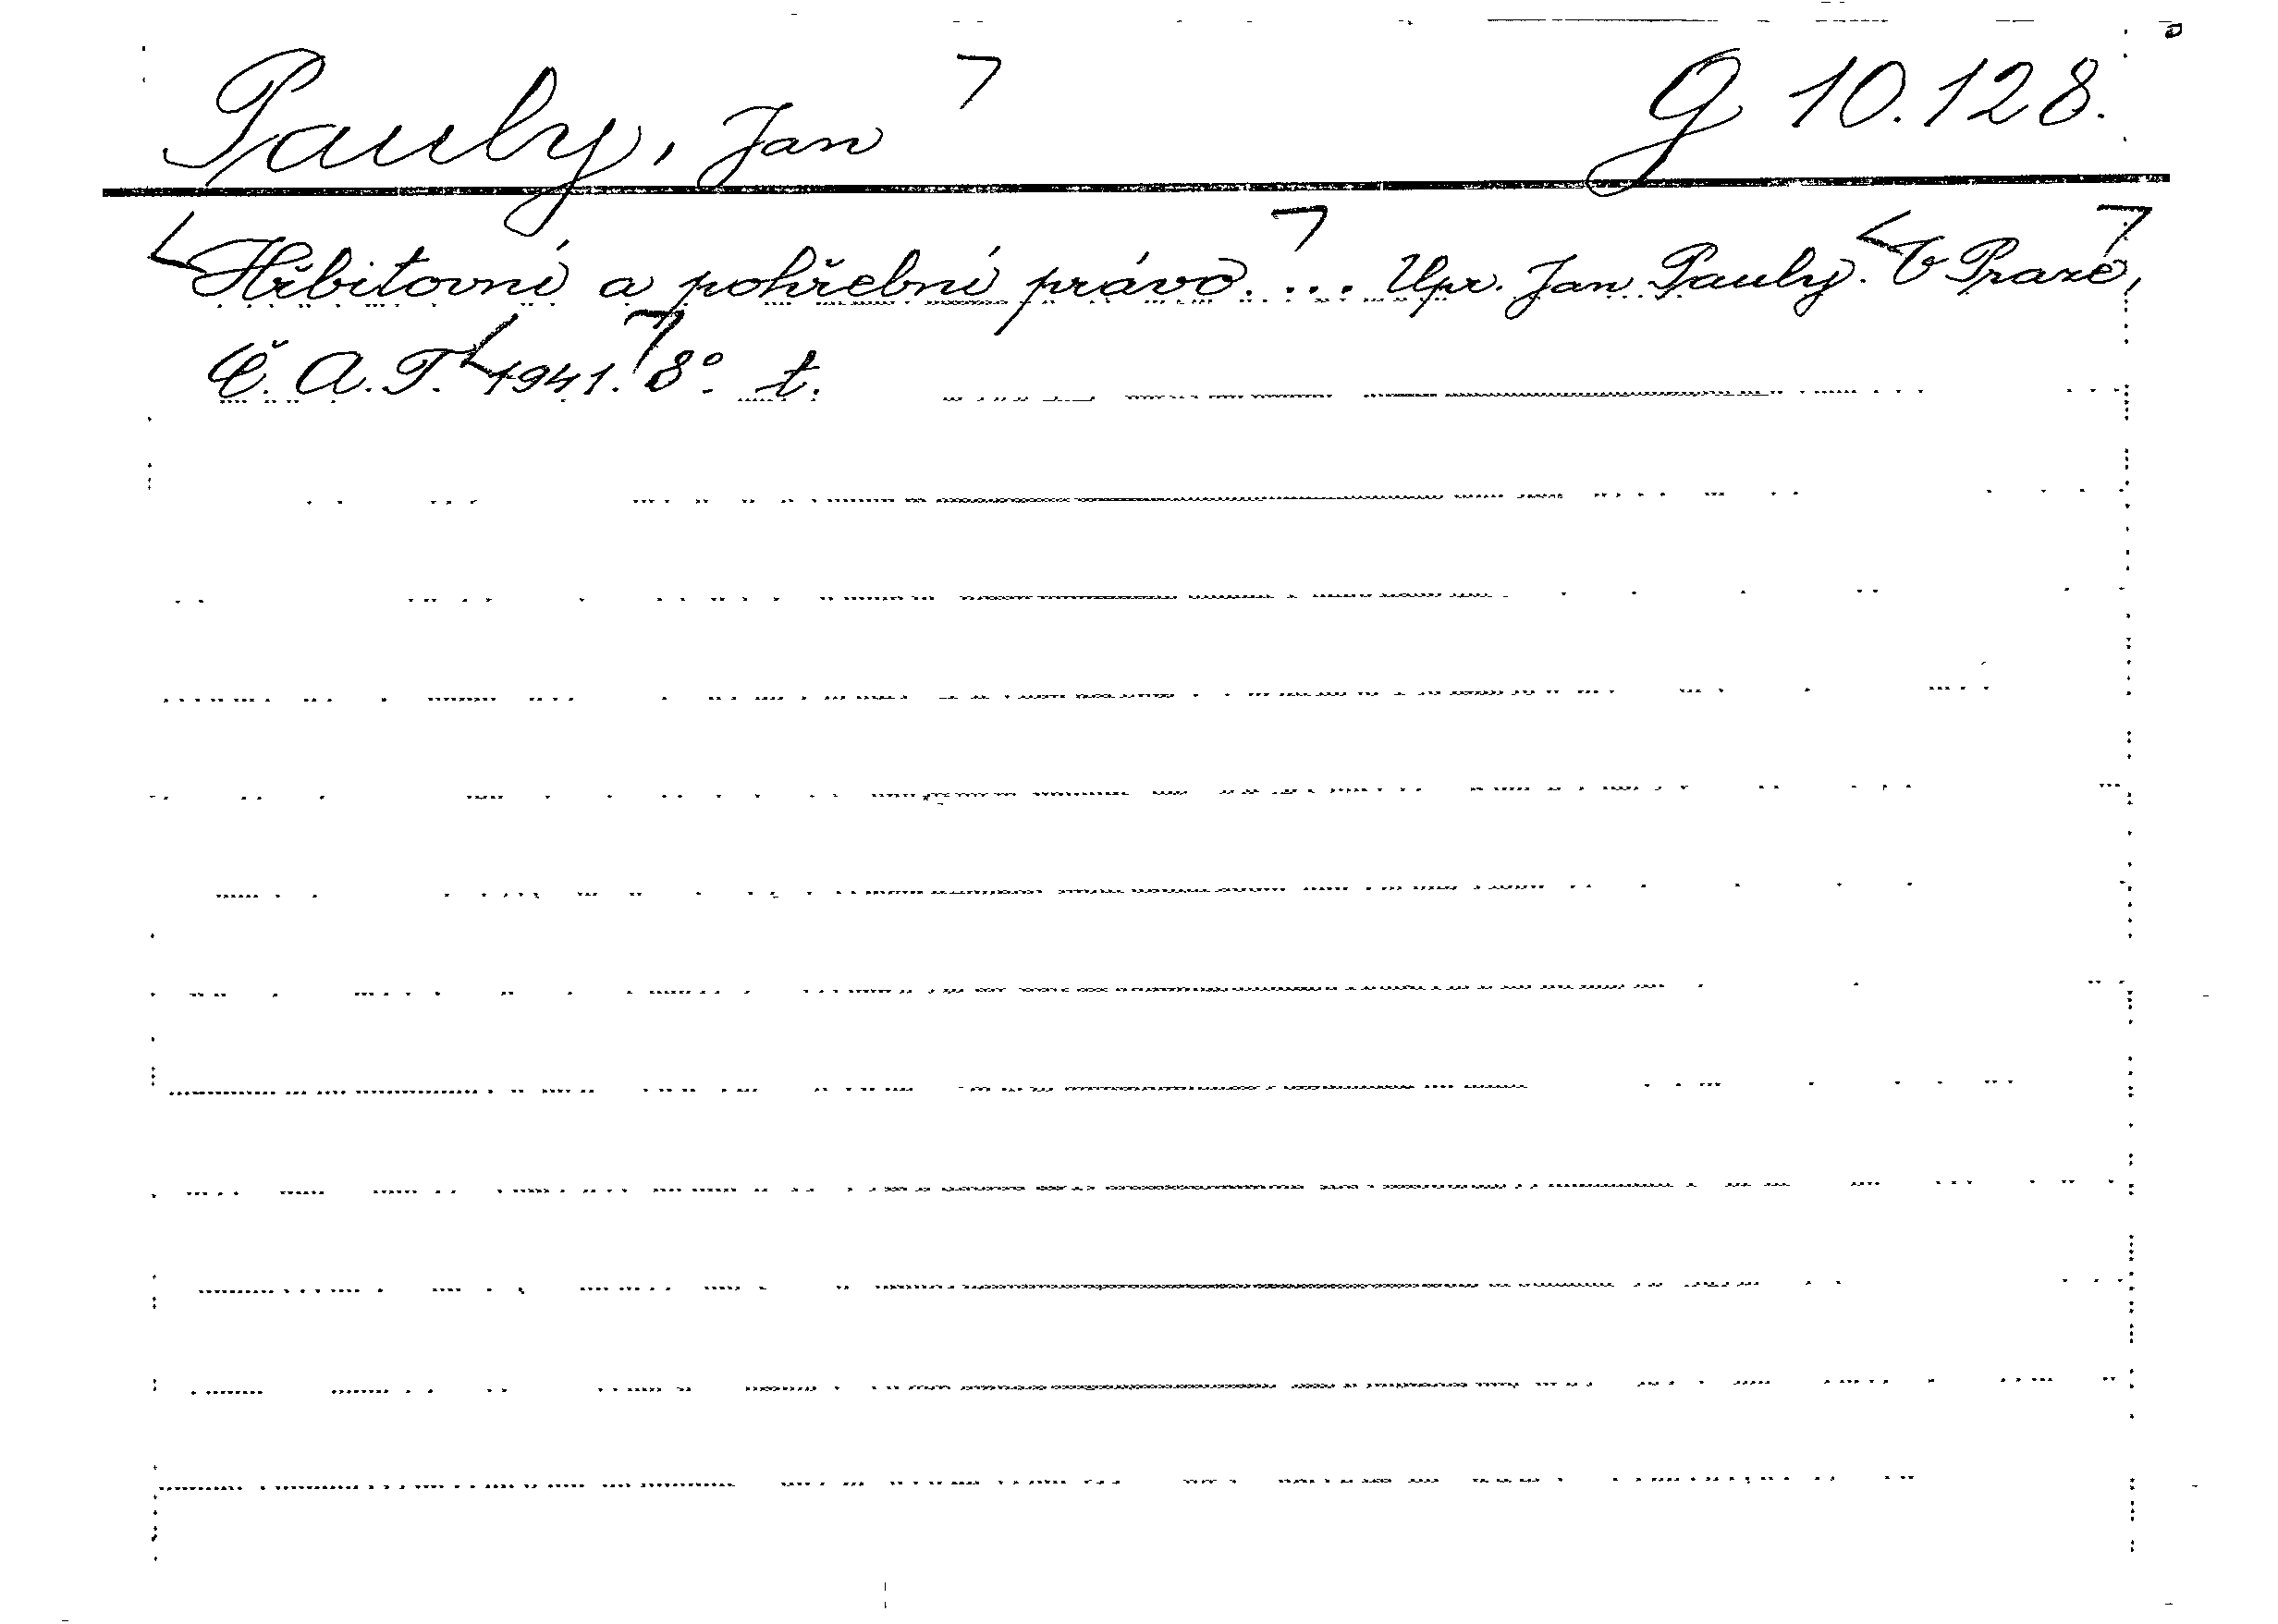 Pauly, Jan G 10.128.
Hřbitovní a pohřební právo. ... Upr. Jan Pauly. V Praze,
Č. A. T. 1941. 8°. t.